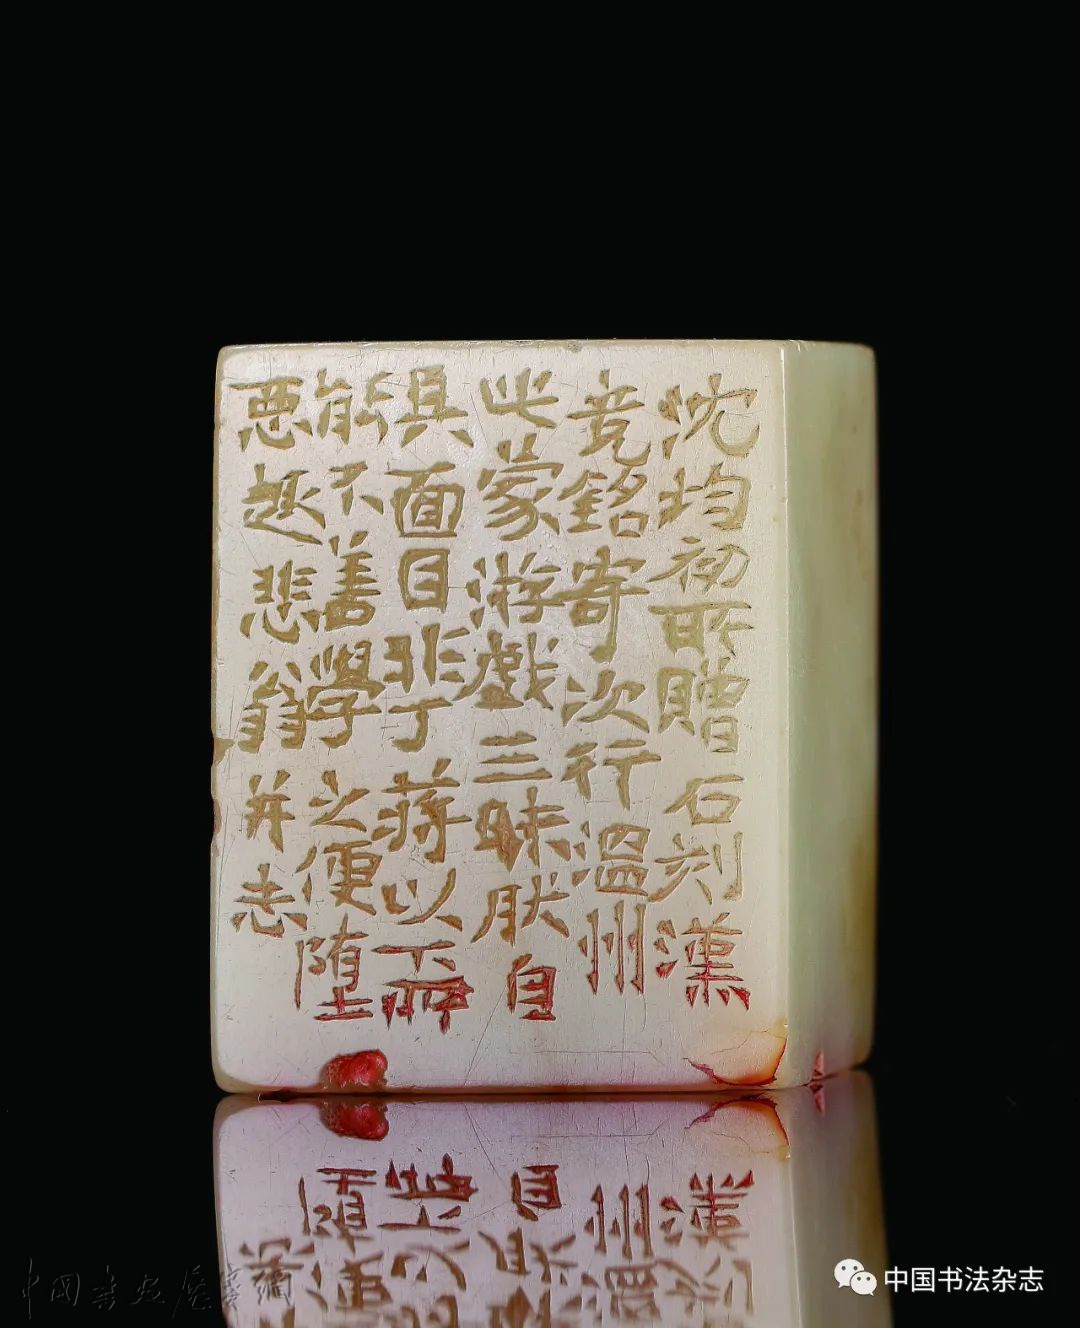 沈均初所贈石刻漢
竟銘寄次行溫州
此蒙游戲三昧肰自
具面目非丁蔣以下所
能不善學之便墮
惡趣悲翁并志
中国书法杂志